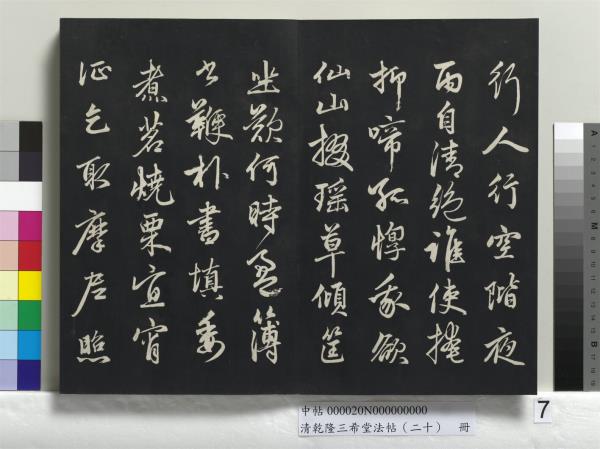 行人行空階夜
雨自清絕誰使掩
抑啼孤惸我欲
仙山掇瑤草傾筐
坐歎何時盈簿
書鞭朴晝填委
煮茗燒栗宜宵
征乞取摩尼照
中帖 000020N000000000
清乾隆三希堂法帖(二十) 冊
7